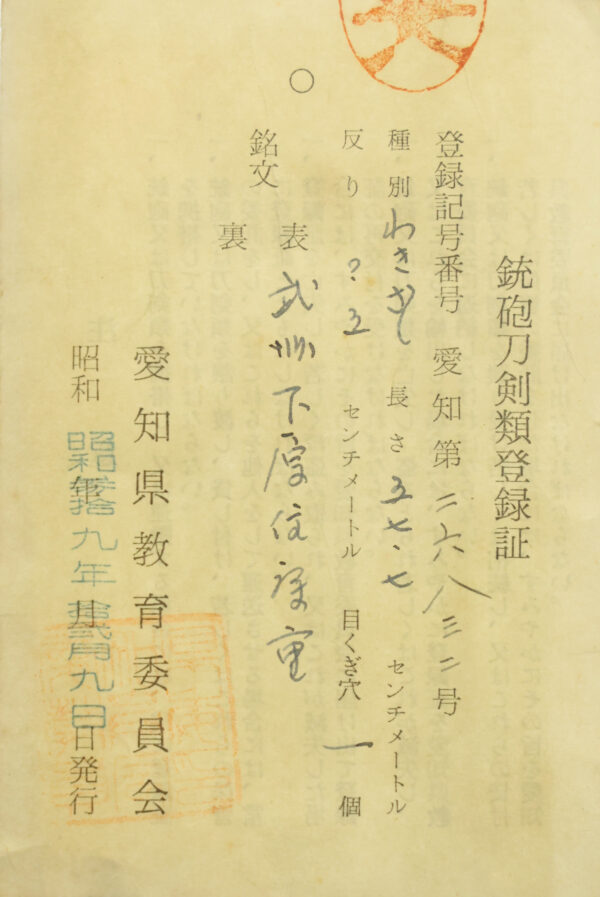 銃砲刀剣類登録証
登録記号番号 愛知第二六八三二号
種別 わきざし 長さ 五七・七 センチメートル
反り 五 センチメートル 目くぎ穴 一 個
銘文 表 武州下原住 重
裏
愛知県教育委員会
昭和 昭和参拾九年拾弐月九日 日発行